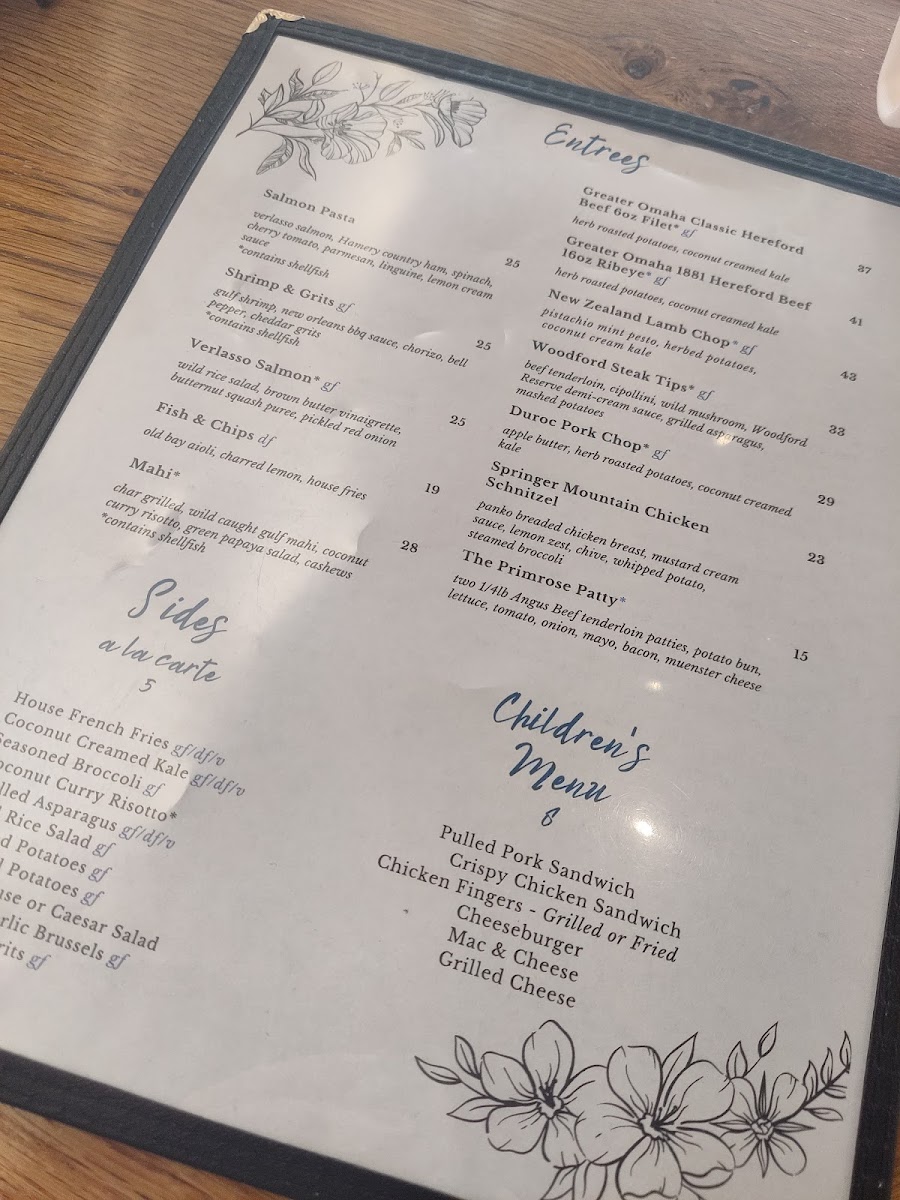 Entrees
Salmon Pasta
verlasso salmon, Hamery country ham, spinach,
cherry tomato, parmesan, linguine, lemon cream
sauce
25
*contains shellfish
Shrimp & Grits gf
gulf shrimp, new orleans bbq sauce, chorizo, bell
pepper, cheddar grits
25
*contains shellfish
Verlasso Salmon* gf
wild rice salad, brown butter vinaigrette,
butternut squash puree, pickled red onion
25
Fish & Chips df
old bay aioli, charred lemon, house fries
19
Mahi*
char grilled, wild caught gulf mahi, coconut
curry risotto, green papaya salad, cashews
28
*contains shellfish
Greater Omaha Classic Hereford
Beef 6oz Filet* gf
herb roasted potatoes, coconut creamed kale
37
Greater Omaha 1881 Hereford Beef
16oz Ribeye* gf
herb roasted potatoes, coconut creamed kale
41
New Zealand Lamb Chop* gf
pistachio mint pesto, herbed potatoes,
coconut cream kale
43
Woodford Steak Tips* gf
beef tenderloin, cipollini, wild mushroom, Woodford
Reserve demi-cream sauce, grilled asparagus,
mashed potatoes
33
Duroc Pork Chop* gf
apple butter, herb roasted potatoes, coconut creamed
kale
29
Springer Mountain Chicken
Schnitzel
panko breaded chicken breast, mustard cream
sauce, lemon zest, chive, whipped potato,
steamed broccoli
23
The Primrose Patty*
two 1/4lb Angus Beef tenderloin patties, potato bun,
lettuce, tomato, onion, mayo, bacon, muenster cheese
15
Sides
a la carte
5
House French Fries gf/df/v
Coconut Creamed Kale gf/df/v
Seasoned Broccoli gf
Curry Risotto*
Asparagus gf/df/v
Rice Salad gf
Potatoes gf
Potatoes gf
or Caesar Salad
Brussels gf
gf
Children's
Menu
8
Pulled Pork Sandwich
Crispy Chicken Sandwich
Chicken Fingers - Grilled or Fried
Cheeseburger
Mac & Cheese
Grilled Cheese